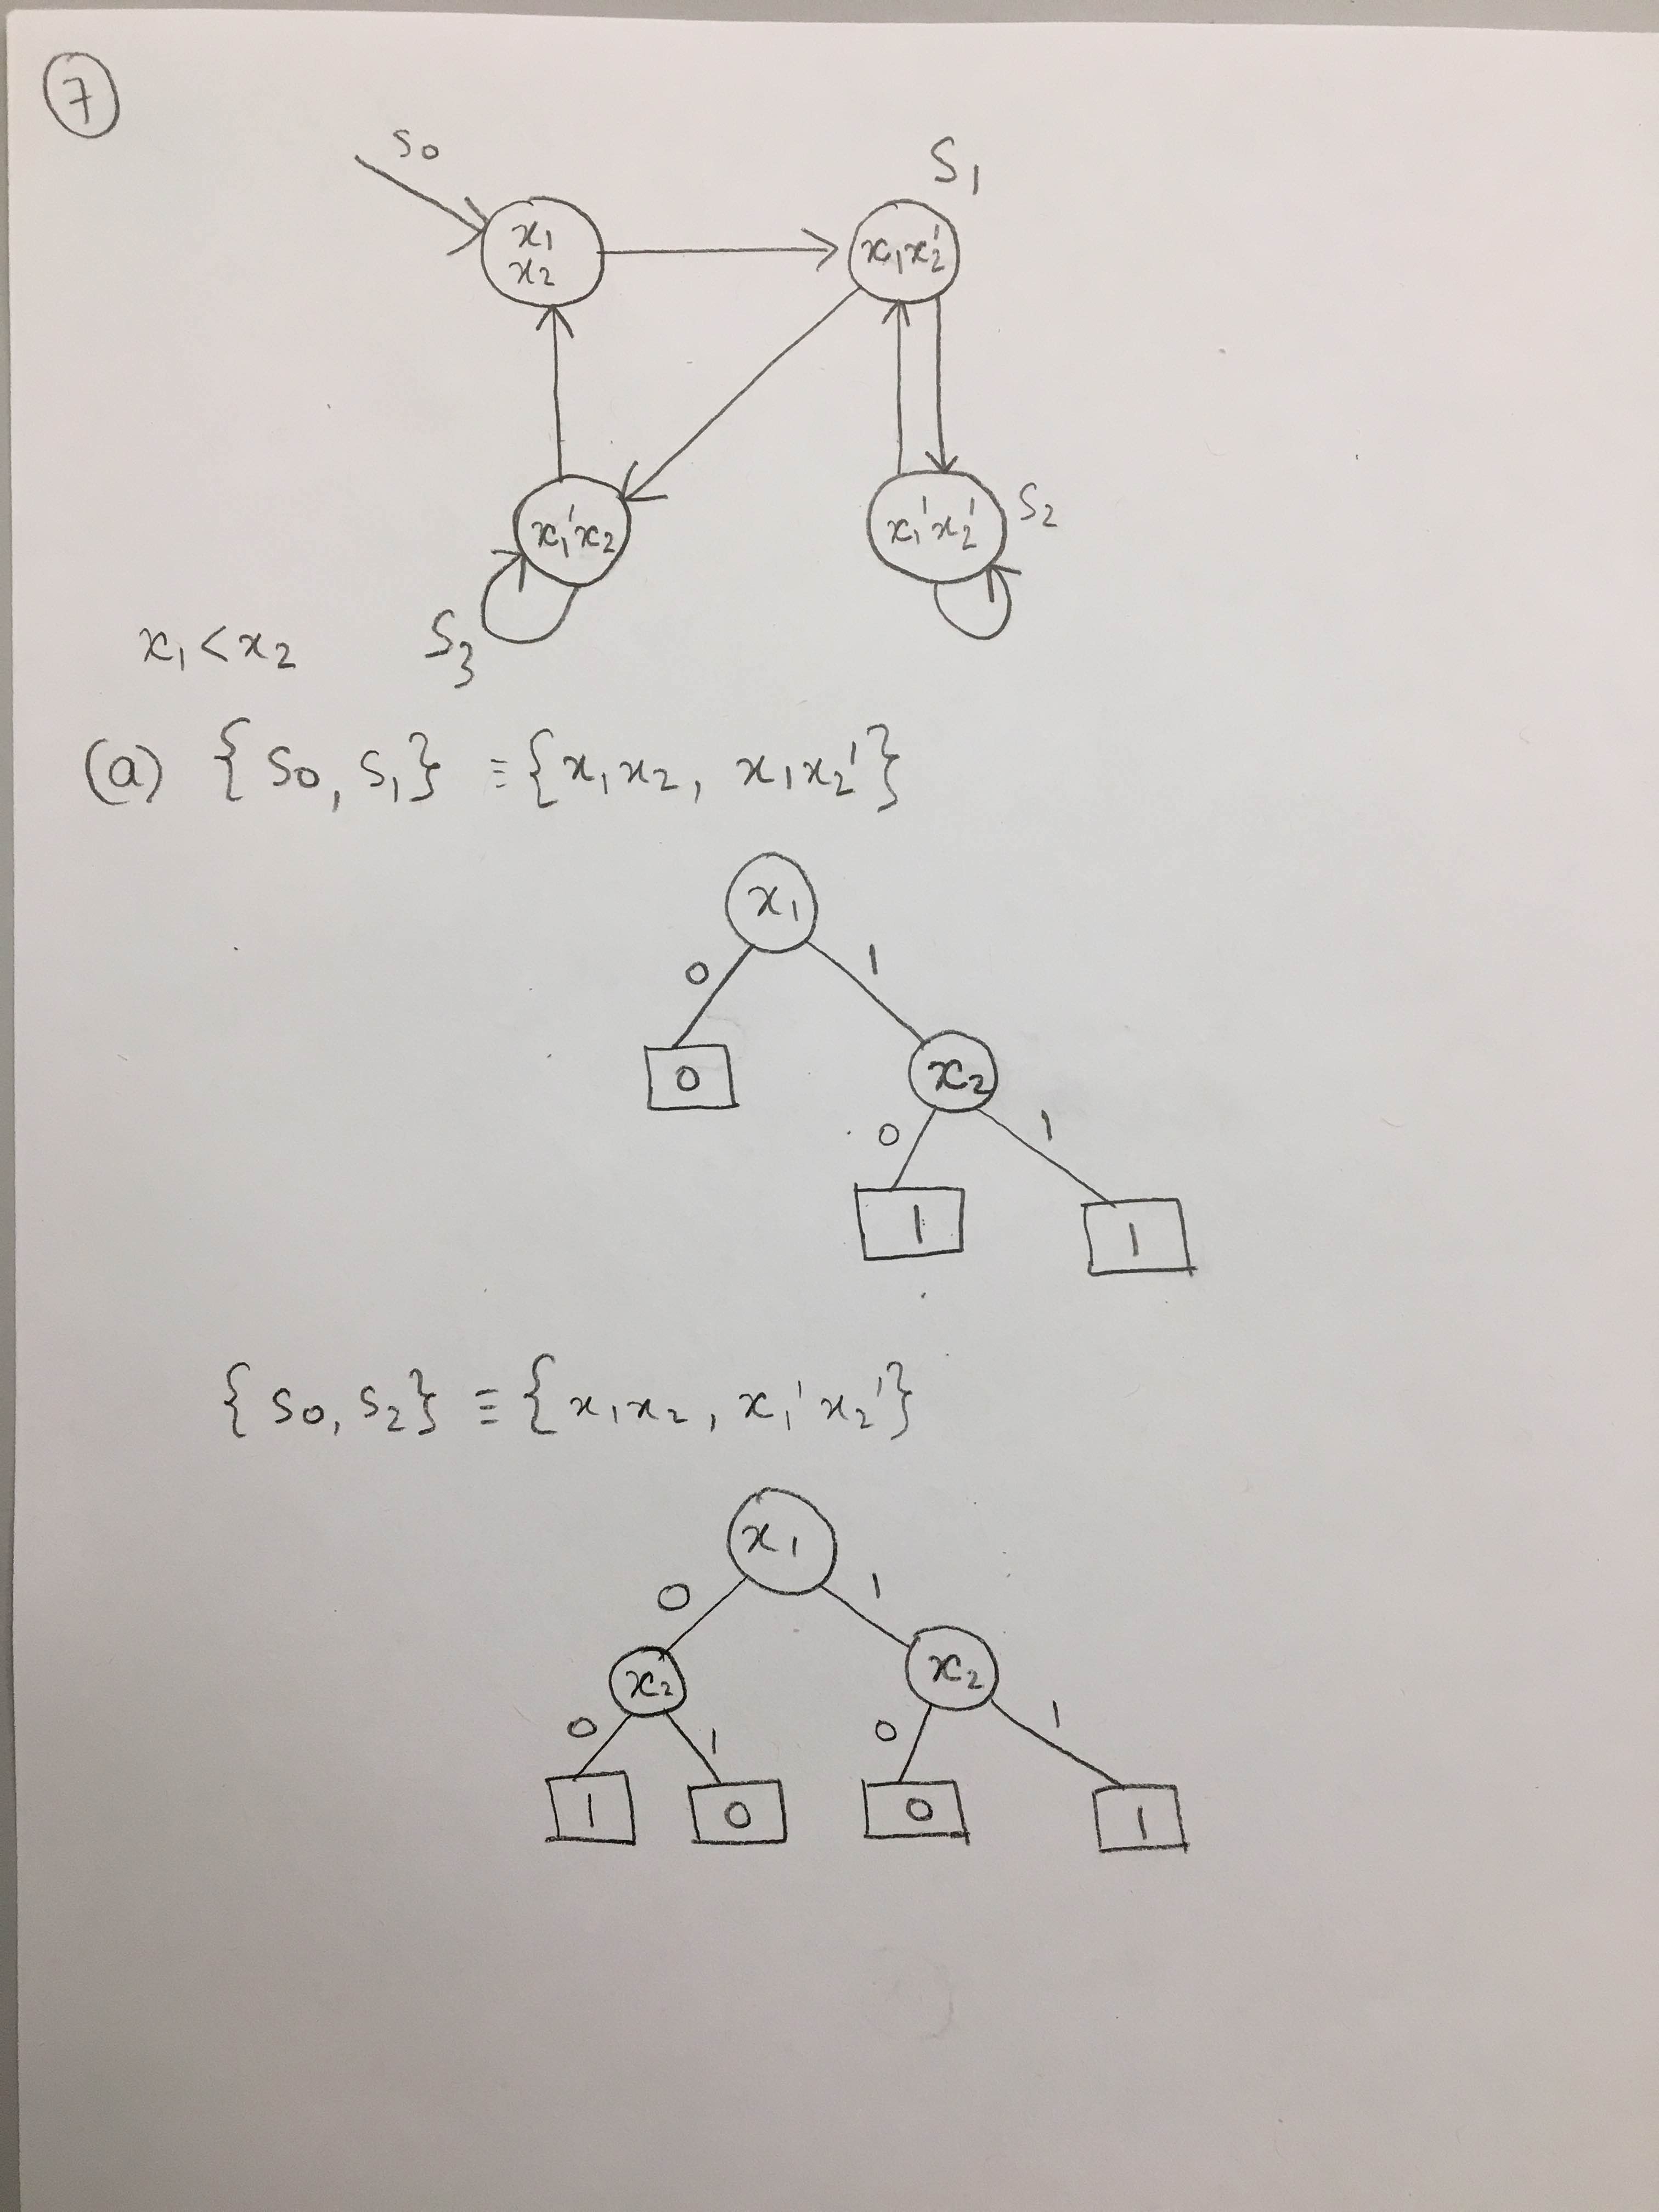 7
S0
S1
x1
x2
x1x2'
x1'x2
x1'x2'
S2
S3
x1 < x2
(a) { S0, S1} ≡ {x1x2, x1x2'}
x1
0 1
0 x2
0 1
1 1
{ S0, S2} ≡ {x1x2, x1'x2'}
x1
0 1
x2 x2
0 1 0 1
1 0 0 1